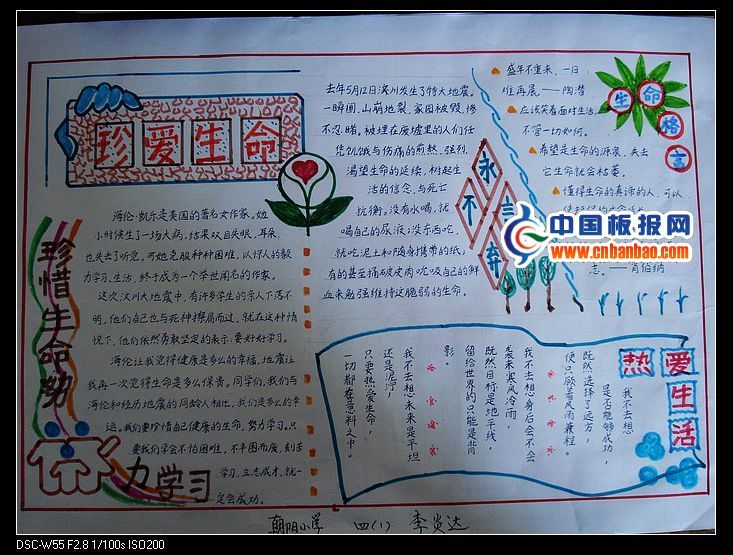 珍爱生命
珍惜生命努
力学习
海伦·凯尔是美国的著名女作家,她
小时候生了一场大病,结果双目失明,耳朵
也失去了听觉,可她克服种种困难,以惊人的毅
力学习、生活,终于成为一个举世闻名的作家。
这次汶川大地震中,有许多学生的亲人下落不
明,他们自己也与死神擦肩而过,就在这种情
况下,他们依然勇敢坚定的表示:要好好学习。
海伦让我觉得健康是多么的幸福,地震让
我再一次觉得生命是多么保贵。同学们,我们与
海伦和经历地震的同龄人相比,我们是多么的幸
运。我们要珍惜自己健康的生命,努力学习。只
要我们学会不怕困难,不半图而废,刻苦
学习,立志成才,就一
定会成功。
去年5月12日汶川发生了特大地震。
一瞬间,山崩地裂,家园被毁,惨
不忍睹,被埋在废墟里的人们任
凭饥饿与伤痛的煎熬,强烈
渴望生命的延续,树起生
活的信念,与死亡
抗衡。没有水喝,就
喝自己的尿液;没东西吃,
就吃泥土和随身携带的纸;
有的甚至捅破皮肉吮吸自己的鲜
血来勉强维持这脆弱的生命。
永不言弃
生命格言
盛年不重来,一日
难再晨。——陶潜
应该笑着面对生活,
不管一切如何。
希望是生命的源泉,失去
它生命就会枯萎。
懂得生命的真谛的人,可以
志。——肖伯纳
中国板报网
www.cnbanbao.com
热爱生活
我不去想
是否能够成功,
既然选择了远方,
便只顾着风雨兼程。
我不去想身后会不会
袭来寒风冷雨
既然目标是地平线,
留给世界的只能是背
影。
我不去想未来是平坦
还是泥泞,
只要热爱生命,
一切都在意料之中。
朝阳小学 四(1) 李炎达
DSC-W55 F2.8 1/100s ISO200